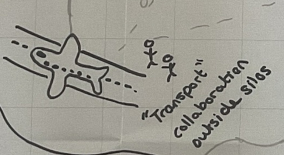 "Transport"
collaboration
outside silos